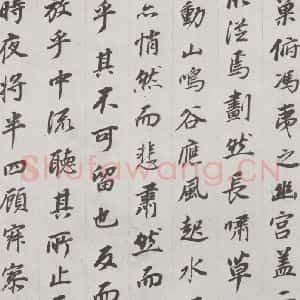 巢俯馮夷之幽宮盖二
從焉劃然長嘯草
動山鳴谷應風起水
亦悄然而悲肅然而
乎其不可留也反而
放乎中流聽其所止
時夜將半四顧寂寥
Shufawang.CN